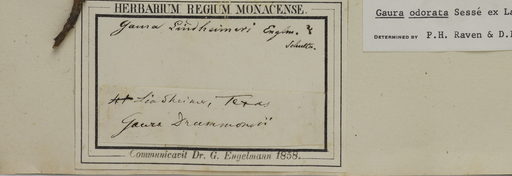 HERBARIUM REGIUM MONACENSE.
Gaura Lindheimeri Engelm. &
Schultz.
Lindheimer, Texas
Gaura Drummondii
Communicavit Dr. G. Engelmann 1858.
Gaura odorata Sessé ex La
DETERMINED BY P.H. Raven & D.